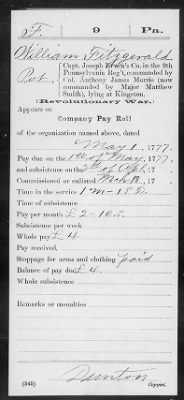 F. 9 Pa.
William Fitzgerald
Pvt., Capt. Joseph Erwin's Co. in the 9th
Pennsylvania Reg't, commanded by
Col. Anthony James Morris (now
commanded by Major Matthew
Smith), lying at Kingston.
(Revolutionary War.)
Appears on
Company Pay Roll
of the organization named above, dated
May 1, 1777.
Pay due on the 1st of May, 1777.
and subsistence on the of Apl, 17
Commissioned or enlisted Mch 13, 17
Time in the service 1 M - 18 D.
Time of subsistence
Pay per month £2-10s.
Subsistence per week
Whole pay £4
Pay received.
Stoppage for arms and clothing paid
Balance of pay due £4.
Whole subsistence
Remarks or casualties
(545) Copyist.